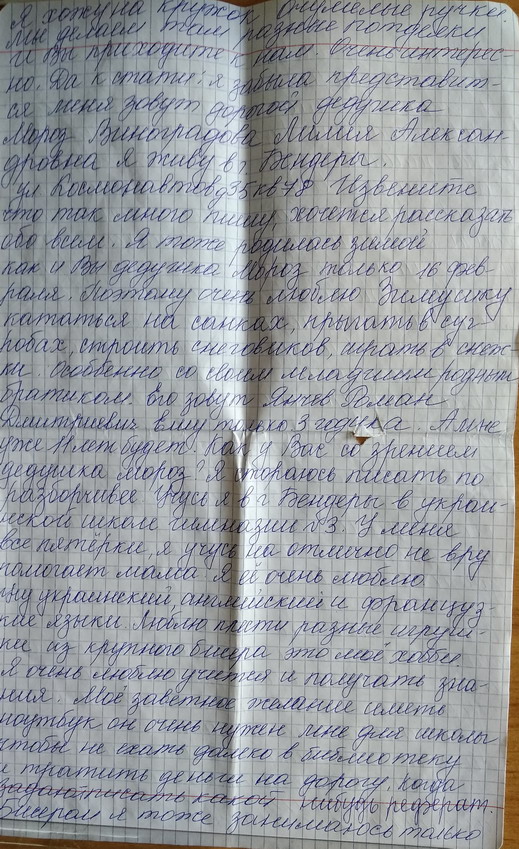 Я хожу на кружок очумелые ручки
Мы делаем там разные поделки
и Вы приходите к нам. Очень интерес-
но. Да кстати! я забыла представит-
ся меня зовут дорогой дедушка
Мороз Виноградова Лилия Алексан-
дровна Я живу в г. Бендеры.
ул Космонавтов д35 кв78 Извените
что так много пишу, хочется рассказать
обо всем. Я тоже родилась зимой
как и Вы дедушка Мороз только 16 фев-
раля. Поэтому очень люблю Зимушку
кататься на санках, прыгать в суг
робах, строить снеговиков, играть в снеж
ки. Особенно со своим младшим родным
братиком. Его зовут Янчев Роман
Дмитриевич Ему только 3 годика. А мне
уже 11 лет будет. Как у Вас со зрением
дедушка Мороз? Я стораюсь писать по
разборчивее Учусь я в г. Бендеры в украи-
нской школе гимназии №3. У меня
все пятёрки, я учусь на отлично не вру
помогает мама. Я её очень люблю
учу украинский, английский и француз-
кие языки. Люблю плести разные игруш-
ки из крупного бисера это моё хобби.
Я очень люблю учится и получать зна-
ния. Моё заветное желание иметь
ноутбук он очень нужен мне для школы
чтобы не ехать далеко в библиотеку
и тратить деньги на дорогу, когда
писать какой пишуць реферат.
Бисером я тоже занимаюсь только